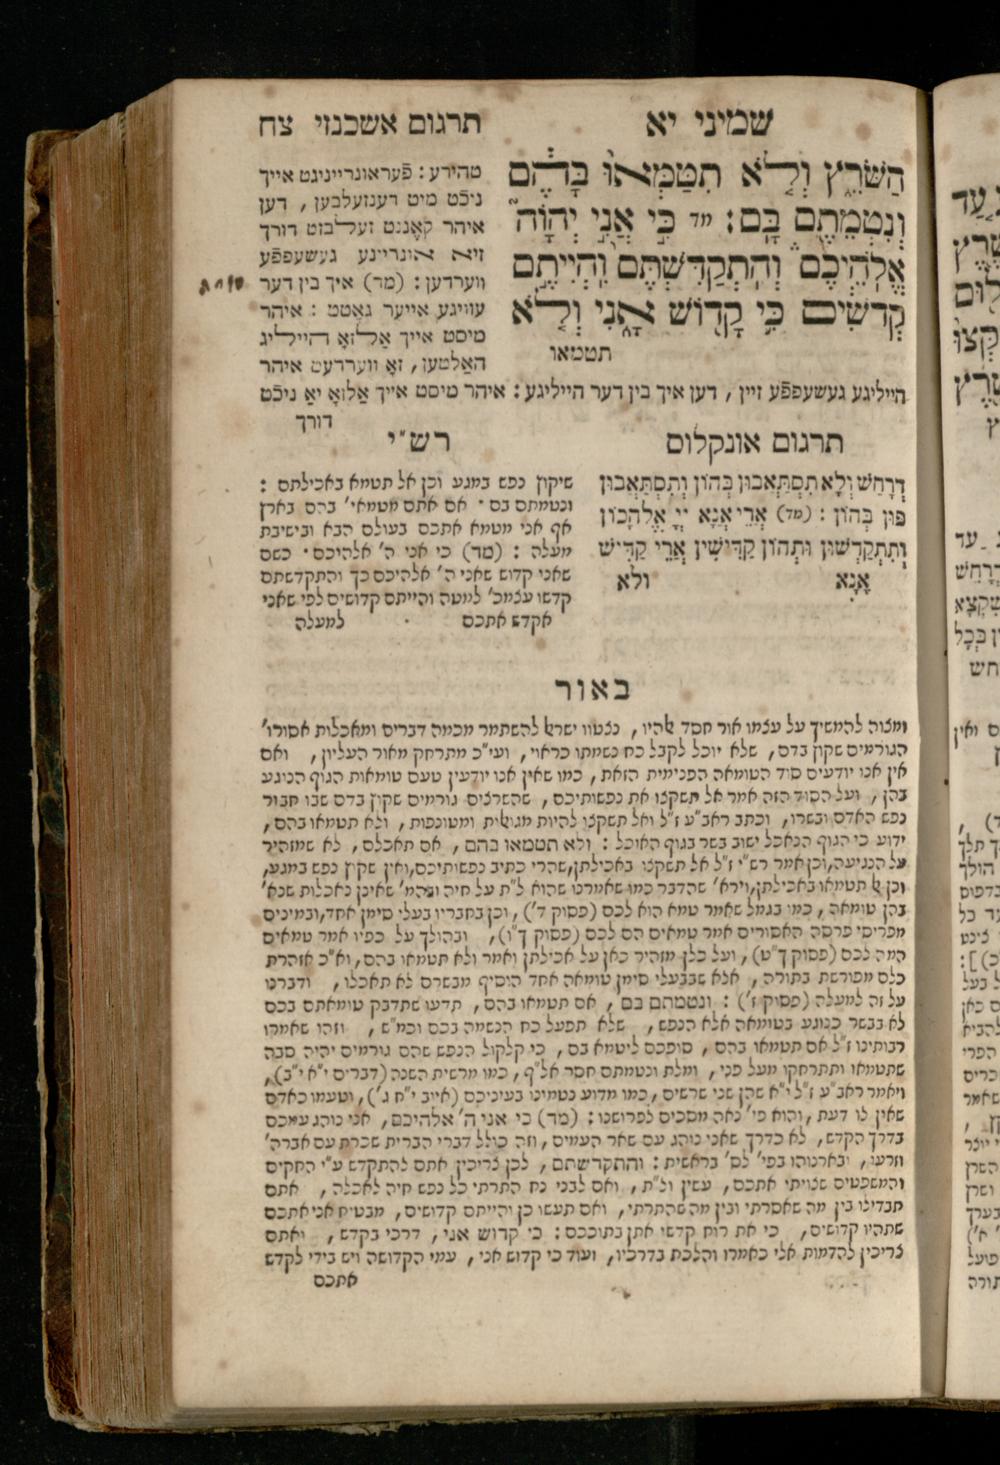 שמיני יא
תרגום אשכנזי צח
הַשֹּׁרֵץ וְלֹא תִטַּמְּאוּ בָּהֶם
וְנִטְמֵתֶם בָּם: מד כִּי אֲנִי יְהוָה
אֱלֹהֵיכֶם וְהִתְקַדִּשְׁתֶּם וִהְיִיתֶם
קְדֹשִׁים כִּי קָדוֹשׁ אָנִי וְלֹא
תטמאו
טהירע: פֿעראונרייניגט אייך
ניכֿט מיט דענזעלבען, דען
איהר קאָננט זעלבזט דורך
זיא אונריינע געשעפפֿע
ווערדען: (מד) איך בין דער
עוויגע אייער גאָטט: איהר
מיסט אייך אַלזאָ הייליג
האַלטען, זאָ ווערדעט איהר
הייליגע געשעפפֿע זיין, דען איך בין דער הייליגע: איהר מיסט אייך אַלזאָ יאַ ניכֿט
דורך
תרגום אונקלוס
דְרָחֵשׁ וְלָא תִסְתַּאֲבוּן בְּהוֹן וְתִסְתַּאֲבוּן
פּוּן בְּהוֹן: (מד) אֲרֵי אֲנָא יְיָ אֱלָהֲכוֹן
וְתִתְקַדְּשׁוּן וּתְהוֹן קַדִּישִׁין אֲרֵי קַדִּישׁ
אֲנָא ולא
רש"י
שיקוץ נפש במגע וכן אל תטמאו באכילתם:
ונטמתם בם. אם אתם מטמאי' בהם בארץ
אף אני מטמא אתכם בעולם הבא ובישיבת
מעלה: (מד) כי אני ה' אלהיכם. כשם
שאני קדוש שאני ה' אלהיכם כך והתקדשתם
קדשו עצמכ' למטה והייתם קדושים לפי שאני
אקדש אתכם למעלה
באור
ומצוה להמשיך על עצמו אור חסד אלהיו, נצטוו ישראל להשתמר מכמה דברים ומאכלות אסורו'
הגורמים שקוץ בדם, שלא יוכל לקבל כח נשמתו כראוי, ועי"כ מתרחק מאור העליון, ואם
אין אנו יודעים סוד הטומאה הפנימית הזאת, כמו שאין אנו יודעין טעם טומאות הגוף הנוגע
בהן, ועל הסוד הזה אמר אל תשקצו את נפשותיכם, שהשרצים גורמים שקוץ בדם שבו חבור
נפש האדם ובשרו, וכתב ראב"ע ז"ל ואל תשקצו להיות מגואלות ומטונפות, ולא תטמאו בהם,
ידוע כי הגוף הנאכל ישוב בשר בגוף האוכל: ולא תטמאו בהם, אם תאכלם, לא שמזהיר
על הנגיעה, וכן אמר רש"י ז"ל אל תשקצו באכילתן, שהרי כתיב נפשותיכם, ואין שקוץ נפש במגע,
וכן לא תטמאו באכילתן, וירא' שהדבר כמו שאמרנו שהוא ל"ת על חיה ובהמ' שאינן נאכלות שנא'
בהן טומאה, כמו בגמל שאמר טמא הוא לכם (פסוק ד'), וכן בחבריו בעלי סימן אחד, ובמינים
מפריסי פרסה האסורים אמר טמאים הם לכם (פסוק ך"ו), ובהולך על כפיו אמר טמאים
המה לכם (פסוק ך"ט), ועל כלן מזהיר כאן על אכילתן ואמר ולא תטמאו בהם, וא"כ אזהרת
כלם מפורשת בתורה, אלא שבבעלי סימן טומאה אחד הוסיף מבשרם לא תאכלו, ודברנו
על זה למעלה (פסוק ז'): ונטמתם בם, אם תטמאו בהם, תדעו שתדבק טומאתם בכם
לא בבשר כנוגע בטומאה אלא הנפש, שלא תפעל כח הנשמה בכם וכמ"ש, וזהו שאמרו
רבותינו ז"ל אם תטמאו בהם, סופכם ליטמא בם, כי קלקול הנפש שהם גורמים יהיה סבה
שתטמאו ותתרחקו מעל פני, ומלת ונטמתם חסר אל"ף, כמו מרשית השנה (דברים י"א י"ב),
ויאמר ראב"ע ז"ל י"א שהן שני שרשים, כמו מדוע נטמינו בעיניכם (איוב י"ח ג'), וטעמו כאדם
שאין לו דעת, והוא פי' נאה מסכים לפרושנו: (מד) כי אני ה' אלהיכם, אני נוהג עמכם
בדרך הקדש, לא כדרך שאני נוהג עם שאר העמים, וזה כולל דברי הברית שכרת עם אברה'
וזרעו, ובארנוהו בפי' לס' בראשית: והתקדשתם, לכן צריכין אתם להתקדש ע"י החקים
והמשפטים שצויתי אתכם, עשין ול"ת, ואם לבני נח התרתי כל נפש חיה לאכלה, אתם
תבדילו בין מה שאסרתי ובין מה שהתרתי, ואם תעשו כן והייתם קדושים, מבטיח אני אתכם
שתהיו קדושים, כי את רוח קדשי אתן בתוככם: כי קדוש אני, דרכי בקדש, ואתם
צריכין להדמות אלי כאמרו והלכת בדרכיו, ועוד כי קדוש אני, עמי הקדושה ויש בידי לקדש
אתכם